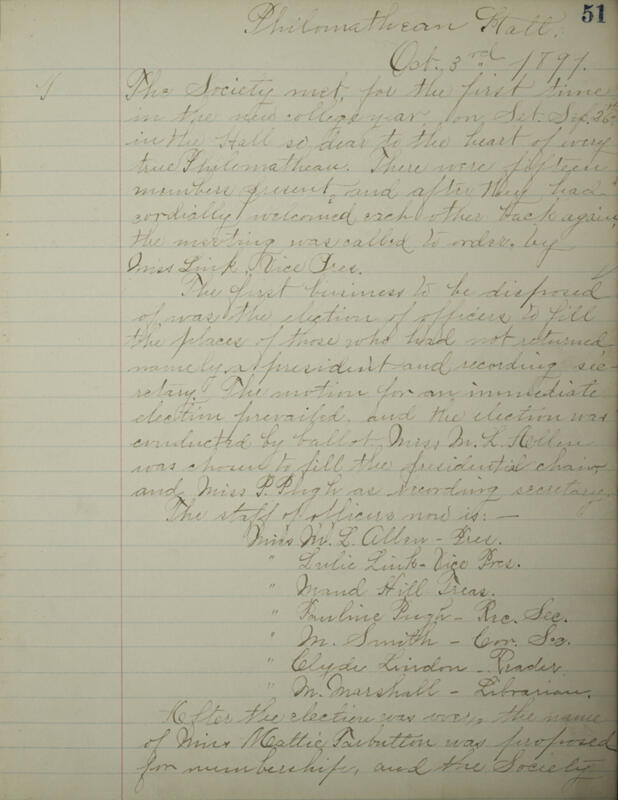 51
Philomathean Hall,
Oct. 3rd 1891.
The Society met, for the first time
in the new college year, on Sat. Sep. 26th
in the Hall so dear to the heart of every
true Philomathean. There were fifteen
members present, and after they had
cordially welcomed each other back again,
the meeting was called to order by
Miss Link, Vice Pres.
The first business to be disposed
of was the election of officers to fill
the places of those who had not returned
namely, a president and recording sec-
retary. The motion for an immediate
election prevailed, and the election was
conducted by ballot. Miss M. L. Allen
was chosen to fill the presidential chair
and Miss P. Pugh as recording secretary.
The staff of officers now is: —
Miss M. L. Allen - Pres.
" Link - Vice Pres.
" Maud Hill Treas.
" Pauline Pugh - Rec. Sec.
" M. Smith - Cor. Sec.
" Clyde Lindon - Reader
" M. Marshall - Librarian.
After the election was over, the name
of Miss Mattie Tarbutton was proposed
for membership, and the Society